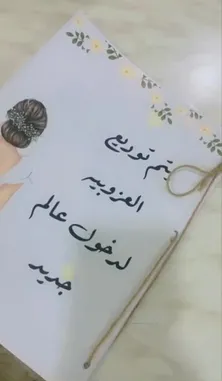 يتم توديع
العزوبيه
لدخول عالم
جديد